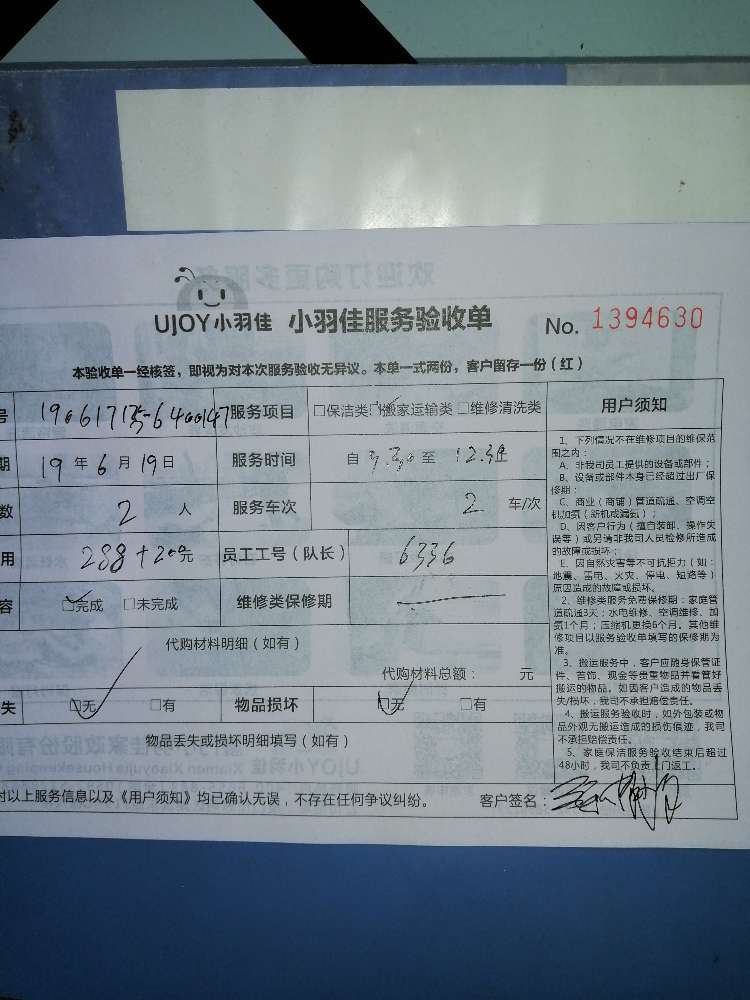 UJOY小羽佳 小羽佳服务验收单 No. 1394630
本验收单一经核签，即视为对本次服务验收无异议。本单一式两份，客户留存一份（红）
号 服务项目 □保洁类 □搬家运输类 □维修清洗类
期 19年6月19日 服务时间 自 至
数 2 人 服务车次 2 车/次
用 288+200元 员工工号（队长） 6336
容 □完成 □未完成 维修类保修期
代购材料明细（如有）
代购材料总额： 元
失 □无 □有 物品损坏 □无 □有
物品丢失或损坏明细填写（如有）
对以上服务信息以及《用户须知》均已确认无误，不存在任何争议纠纷。 客户签名：
用户须知
1、下列情况不在维修项目的维保范
围之内：
A、非我司员工提供的设备或部件；
B、设备或部件本身已经超过出厂保
修期；
C、商业（商铺）管道疏通、空调空
机加氨（新机或漏氨）；
D、因客户行为（擅自装卸、操作失
误等）或另请非我司人员检修所造成
的故障或损坏；
E、因自然灾害等不可抗拒力（如：
地震、雷电、火灾、停电、短路等）
原因造成的故障或损坏。
2、维修类服务免费保修期：家庭管
道疏通3天；水电维修、空调维修、加
氨1个月；压缩机更换6个月。其他维
修项目以服务验收单填写的保修期为
准。
3、搬运服务中，客户应随身保管证
件、首饰、现金等贵重物品并看管好
搬运的物品。如因客户造成的物品丢
失/损坏，我司不承担赔偿责任。
4、搬运服务验收时，如外包装或物
品外观无搬运造成的损伤痕迹，我司
不承担赔偿责任。
5、家庭保洁服务验收结束后超过
48小时，我司不负责上门返工。